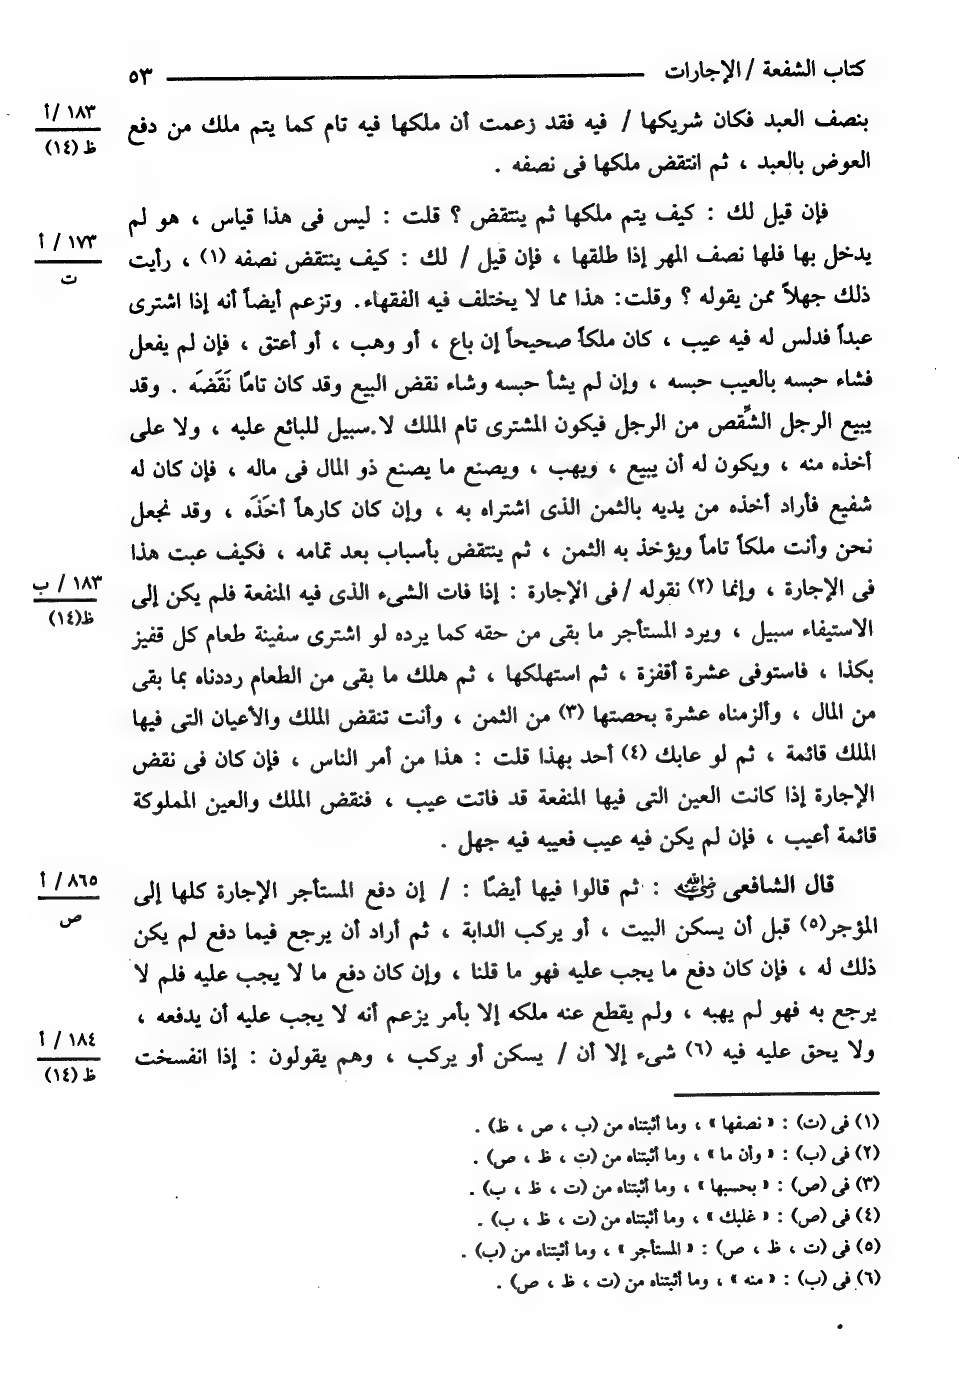 كتاب الشفعة / الإجارات ٥٣
بنصف العبد فكان شريكها / فيه فقد زعمت أن ملكها فيه تام كما يتم ملك من دفع
١٨٣ / أ
ظ (١٤)
العوض بالعبد ، ثم انتقض ملكها فى نصفه .
فإن قيل لك : كيف يتم ملكها ثم ينتقض ؟ قلت : ليس فى هذا قياس ، هو لم
يدخل بها فلها نصف المهر إذا طلقها ، فإن قيل / لك : كيف ينتقض نصفه (١) ، رأيت
١٧٣ / أ
ت
ذلك جهلاً ممن يقوله ؟ وقلت : هذا مما لا يختلف فيه الفقهاء. وتزعم أيضاً أنه إذا اشترى
عبداً فدلس له فيه عيب ، كان ملكاً صحيحاً إن باع ، أو وهب ، أو أعتق ، فإن لم يفعل
فشاء حبسه بالعيب حبسه ، وإن لم يشأ حبسه وشاء نقض البيع وقد كان تامًا نَقَضَه . وقد
يبيع الرجل الشِّقص من الرجل فيكون المشترى تام الملك لا سبيل للبائع عليه ، ولا على
أخذه منه ، ويكون له أن يبيع ، ويهب ، ويصنع ما يصنع ذو المال فى ماله ، فإن كان له
شفيع فأراد أخذه من يديه بالثمن الذى اشتراه به ، وإن كان كارهاً أخَذَه ، وقد نجعل
نحن وأنت ملكاً تاماً ويؤخذ به الثمن ، ثم ينتقض بأسباب بعد تمامه ، فكيف عبت هذا
فى الإجارة ، وإنما (٢) نقوله / فى الإجارة : إذا فات الشىء الذى فيه المنفعة فلم يكن إلى
١٨٣ / ب
ظ(١٤)
الاستيفاء سبيل ، ويرد المستأجر ما بقى من حقه كما يرده لو اشترى سفينة طعام كل قفيز
بكذا ، فاستوفى عشرة أقفزة ، ثم استهلكها ، ثم هلك ما بقى من الطعام رددناه بما بقى
من المال ، وألزمناه عشرة بحصتها (٣) من الثمن ، وأنت تنقض الملك والأعيان التى فيها
الملك قائمة ، ثم لو عابك (٤) أحد بهذا قلت : هذا من أمر الناس ، فإن كان فى نقض
الإجارة إذا كانت العين التى فيها المنفعة قد فاتت عيب ، فنقض الملك والعين المملوكة
قائمة أعيب ، فإن لم يكن فيه عيب فعيبه فيه جهل .
قال الشافعى رضي الله عنه : ثم قالوا فيها أيضًا : / إن دفع المستأجر الإجارة كلها إلى
٨٦٥ / أ
ص
المؤجر(٥) قبل أن يسكن البيت ، أو يركب الدابة ، ثم أراد أن يرجع فيما دفع لم يكن
ذلك له ، فإن كان دفع ما يجب عليه فهو ما قلنا ، وإن كان دفع ما لا يجب عليه فلم لا
يرجع به فهو لم يهبه ، ولم يقطع عنه ملكه إلا بأمر يزعم أنه لا يجب عليه أن يدفعه ،
ولا يحق عليه فيه (٦) شىء إلا أن / يسكن أو يركب ، وهم يقولون : إذا انفسخت
١٨٤ / أ
ظ (١٤)
(١) فى (ت) : « نصفها » ، وما أثبتناه من (ب ، ص ، ظ) .
(٢) فى (ب) : « وأن ما » ، وما أثبتناه من (ت ، ظ ، ص) .
(٣) فى (ص) : « بحسبها » ، وما أثبتناه من (ت ، ظ ، ب) .
(٤) فى (ص) : « غلبك » ، وما أثبتناه من (ت ، ظ ، ب) .
(٥) فى (ت ، ظ ، ص) : « المستأجر » ، وما أثبتناه من (ب) .
(٦) فى (ب) : « منه » ، وما أثبتناه من (ت ، ظ ، ص) .